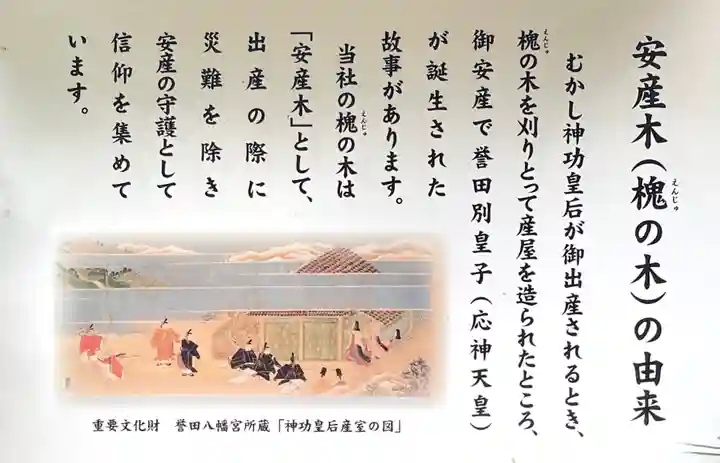 安産木(槐の木)の由来
えんじゅ
むかし神功皇后が御出産されるとき、
槐の木を刈りとって産屋を造られたところ、
えんじゅ
御安産で誉田別皇子(応神天皇)
が誕生された
故事があります。
当社の槐の木は
えんじゅ
「安産木」として、
出産の際に
災難を除き
安産の守護として
信仰を集めて
います。
重要文化財 誉田八幡宮所蔵「神功皇后産室の図」